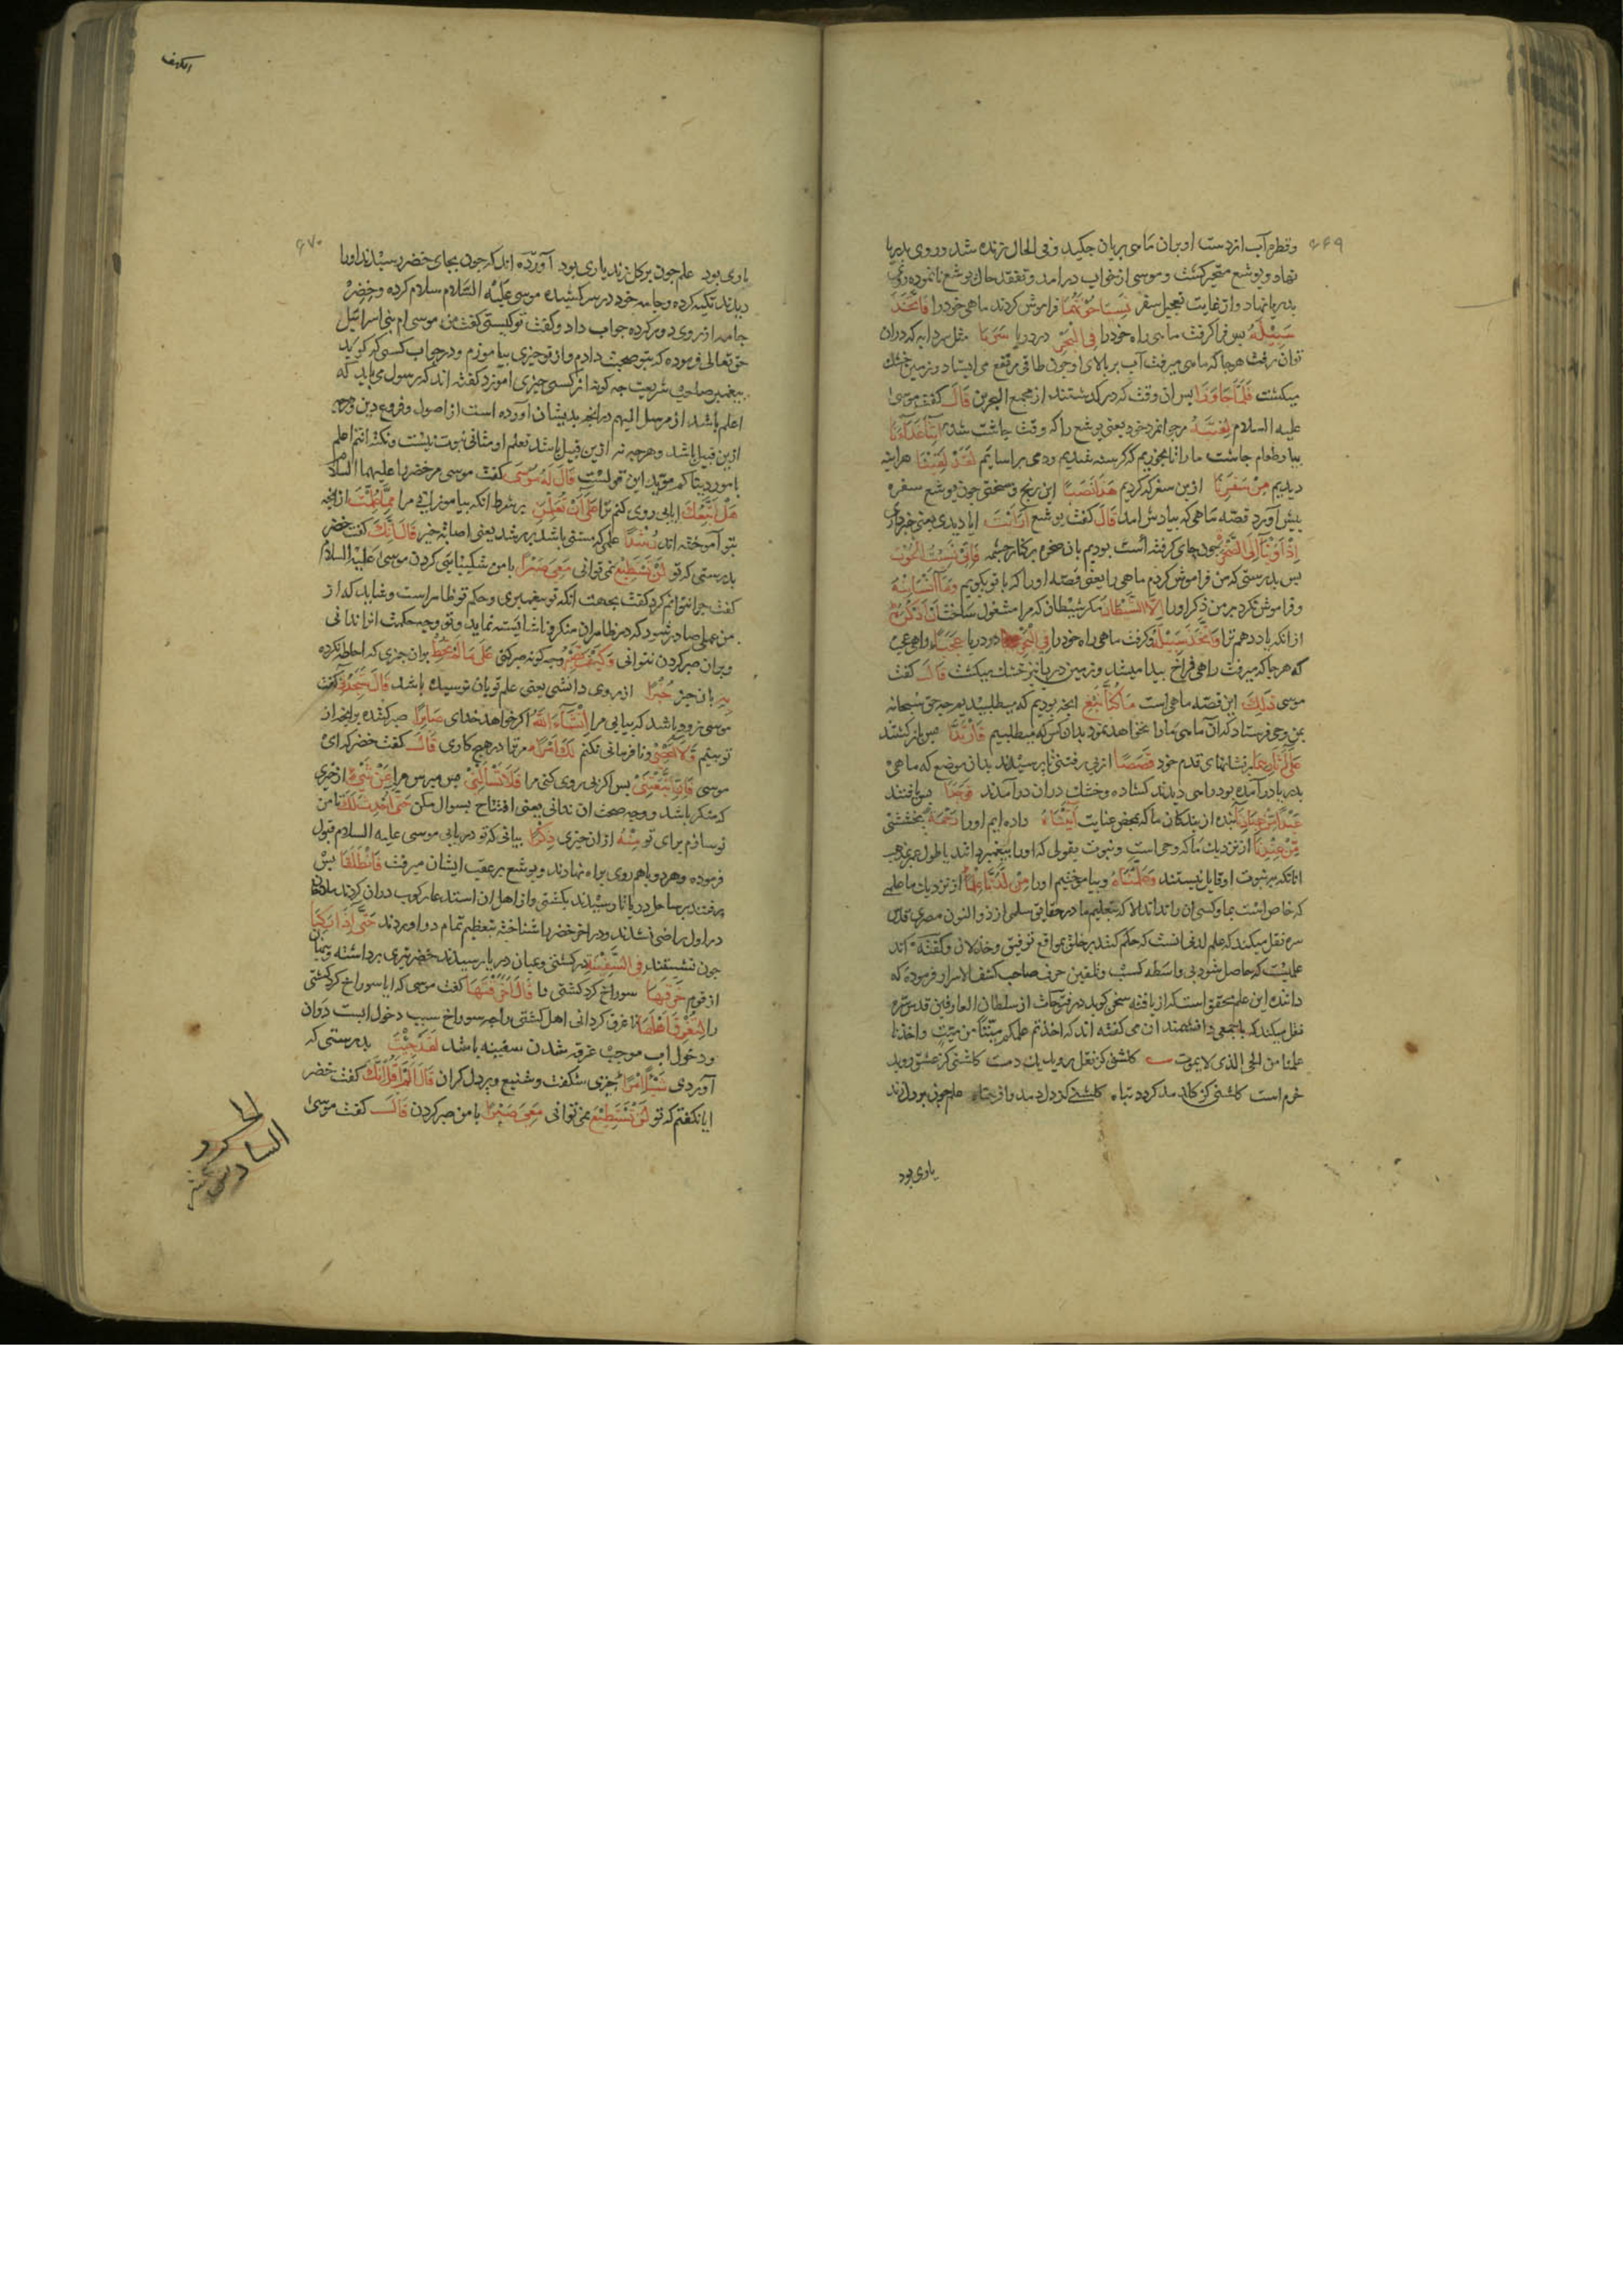 ۶۶۹
وقطره آب از دست او بران ماهی بریان چکید و فی الحال زنده شد و روی بدریا
نهاد و یوشع متحیر کشت و موسی از خواب درامد و تفقد حال یوشع نانموده روی
بدریا نهاد و از غایت تعجیل سفر نَسِیَا حُوتَهُمَا فراموش کردند ماهی خود را فَاتَّخَذَ
سَبِیْلَهُ بس فرا کرفت ماهی راه خود را فِی الْبَحْرِ در دریا سَرَبًا مثل سردابه که دران
توان رفت هرجا که ماهی میرفت آب بر بالای او چون طاقی مرتفع می ایستاد و زمین خشك
میکشت فَلَمَّا جَاوَزَا بس ان وقت که درکذشتند از مجمع البحرین قَالَ کفت موسی
علیه السلام لِفَتٰىهُ مرجوانمرد خود یعنی یوشع را که وقت چاشت شد اٰتِنَا غَدَآءَنَا
بیا و طعام چاشت ما را تا بخوریم که کرسنه شدیم ودمی براسایم لَقَدْ لَقِیْنَا هراینه
دیدیم مِنْ سَفَرِنَا ازین سفر که کردیم هٰذَا نَصَبًا این رنج و سختی چون یوشع سفره
بیش آورد قصّه ماهی که بیادش امد قَالَ کفت یوشع اَرَاَیْتَ ایا دیدی یعنی خبر داری
اِذْ اَوَیْنَآ اِلَى الصَّخْرَةِ چون جای کرفته بودیم بان صخره برکنار چشمه فَاِنِّی نَسِیْتُ الْحُوْتَ
بس بدرستی که من فراموش کردم ماهی را یعنی قصّه او را که با تو بکویم وَمَآ اَنْسٰىنِیْهُ
وفراموش نکرد بر من ذکر او را اِلَّا الشَّیْطَانُ مکر شیطان که مرا مشغول ساخت اَنْ اَذْکُرَهُ
از انکه یاد دهم ترا وَاتَّخَذَ سَبِیْلَهُ وکرفت ماهی راه خود را فِی الْبَحْرِ در دریا عَجَبًا راهی عجب
که هرجا که میرفت راهی فراخ بیدا میشد و زمین دریا نیز خشك میکشت قَالَ کفت
موسی ذٰلِكَ این قصّه ماهی است مَا کُنَّا نَبْغِ انچه بودیم که میطلبیدیم چه حق سبحانه
بمن وحی فرستاد که آن ماهی ما را بخواهد نمود بدان کس که میطلبیم فَارْتَدَّا بس بازکشتند
عَلٰٓی اٰثَارِهِمَا بر نشانهای قدم خود قَصَصًا از پی رفتنی تا برسیدند بدان موضع که ماهی
بدریا درآمده بود راهی دیدند کشاده وخشك دران درآمدند فَوَجَدَا بس یافتند
عَبْدًا مِّنْ عِبَادِنَآ بنده از بندکان ما که بمحض عنایت اٰتَیْنٰهُ داده ایم او را رَحْمَةً بخششی
مِّنْ عِنْدِنَا از نزدیك ما که وحی است ونبوت بقولی که او را بیغمبر دانند یا طول عمر
انانکه بر نبوت او قایل نیستند وَعَلَّمْنٰهُ وبیاموختیم او را مِنْ لَّدُنَّا عِلْمًا از نزدیك ما علمی
که خاص است بما وکسی ان را نداند الا که بتعلیم ما در حقایق سلمی از ذو النون مصری قدس
سره نقل میکند که علم لدنی انست که حکم کنند بر خلق بمواقع توفیق وخذلان وکفته اند
علمیست که حاصل شود بی واسطه کسب وتلقین حرف صاحب کشف الاسرار فرموده که
داننده این علم محقق است که از یافته سخن کوید در فتوحات از سلطان العارفین قدس سره
نقل میکند که با جمعی دانشمندان می کفته اند که اخذتم علمکم میتًا من میتٍ واخذنا
علمنا من الحی الذی لا یموت کلشنی کز نقل روید یك دمست کلشنی کز عشق روید
خرم است کلشنی کز کل دمد کردد تباه کلشنی کز دل دمد وافرحتاه علم چون بر دل زند
یاری بود
الکهف
۶۷۰
یاری بود علم چون بر کل زند باری بود آورده اند که چون بجای خضر رسیدند او را
دیدند تکیه کرده وجامه خود در سر کشیده موسی علیه السّلام سلام کرده وخضر
جامه از روی دور کرده جواب داد وکفت تو کیستی کفت من موسی ام بنی اسرائیل
حق تعالی فرموده که بتو صحبت دارم واز تو چیزی بیاموزم ودر جواب کسی که کوید
بیغمبر صاحب شریعت چه کونه از کسی چیزی اموزد کفته اند که رسول می باید که
اعلم باشد از مرسل الیهم درانچه بدیشان آورده است از اصول وفروع دین وهرچه
ازین قبیل باشد وهرچه نه ازین قبیل باشد تعلم او منافی نبوت نیست ونکته انتم اعلم
بامور دنیاکم مؤید این قولست قَالَ لَهُ مُوْسٰی کفت موسی مر خضر را علیهما السلام
هَلْ اَتَّبِعُكَ ایا پی روی کنم ترا عَلٰٓی اَنْ تُعَلِّمَنِ بر شرط انکه بیاموزانی مرا مِمَّا عُلِّمْتَ ازانچه
بتو آموخته اند رُشْدًا علمی که مبتنی باشد بر رشد یعنی اصابة خیر قَالَ اِنَّكَ کفت خضر
بدرستی که تو لَنْ تَسْتَطِیْعَ نمی توانی مَعِیَ صَبْرًا با من شکیبایی کردن موسی علیه السلام
کفت چرا نتوانم کرد کفت بجهت انکه تو بیغمبری وحکم تو بظاهر است وشاید که از
من عملی صادر شود که در ظاهر ان منکر وناشایسته نماید وتو وجه حکمت انرا ندانی
وبران صبر کردن نتوانی وَکَیْفَ تَصْبِرُ وچه کونه صبر کنی عَلٰی مَا لَمْ تُحِطْ بران چیزی که احاطه نکرده
بِهٖ بان چیز خُبْرًا از روی دانشی یعنی علم تو بان نرسیده باشد قَالَ سَتَجِدُنِیْٓ کفت
موسی زود باشد که بیابی مرا اِنْ شَآءَ اللّٰهُ اکر خواهد خدای صَابِرًا صبر کننده برانچه از
تو بینم وَّلَآ اَعْصِیْ ونافرمانی نکنم لَكَ اَمْرًا مر ترا در هیچ کاری قَالَ کفت خضر که ای
موسی فَاِنِ اتَّبَعْتَنِیْ بس اکر پی روی کنی مرا فَلَا تَسْـَٔلْنِیْ بس مپرس مرا عَنْ شَیْءٍ از چیزی
که منکر باشد ووجه صحت ان ندانی یعنی افتتاح بسوال مکن حَتّٰٓی اُحْدِثَ لَكَ تا من
نو سازم برای تو مِنْهُ ازان چیزی ذِکْرًا بیانی که تو دریابی موسی علیه السلام قبول
فرموده وهر دو باهم روی براه نهادند ویوشع بر عقب ایشان میرفت فَانْطَلَقَا بس
برفتند بر ساحل دریا تا رسیدند بکشتی واز اهل ان استدعا رکوب دران کردند
در اول راضی نشدند ودر اخر خضر را شناخته بتعظیم تمام دراوردند حَتّٰٓی اِذَا رَکِبَا
چون نشستند فِی السَّفِیْنَةِ در کشتی ومیان دریا رسیدند خضر تبری برداشته وپنهان
از قوم خَرَقَهَا سوراخ کرد کشتی را قَالَ اَخَرَقْتَهَا کفت موسی که ایا سوراخ کردی کشتی
را لِتُغْرِقَ اَهْلَهَا تا غرق کردانی اهل کشتی را چه سوراخ سبب دخول ابست دران
ودخول اب موجب غرقه شدن سفینه باشد لَقَدْ جِئْتَ بدرستی که
آوردی شَیْـًٔا اِمْرًا چیزی شکفت وشنیع وبر دل کران قَالَ اَلَمْ اَقُلْ اِنَّكَ کفت خضر
ایا نکفتم که تو لَنْ تَسْتَطِیْعَ نمی توانی مَعِیَ صَبْرًا با من صبر کردن قَالَ کفت موسی
السادس عشر